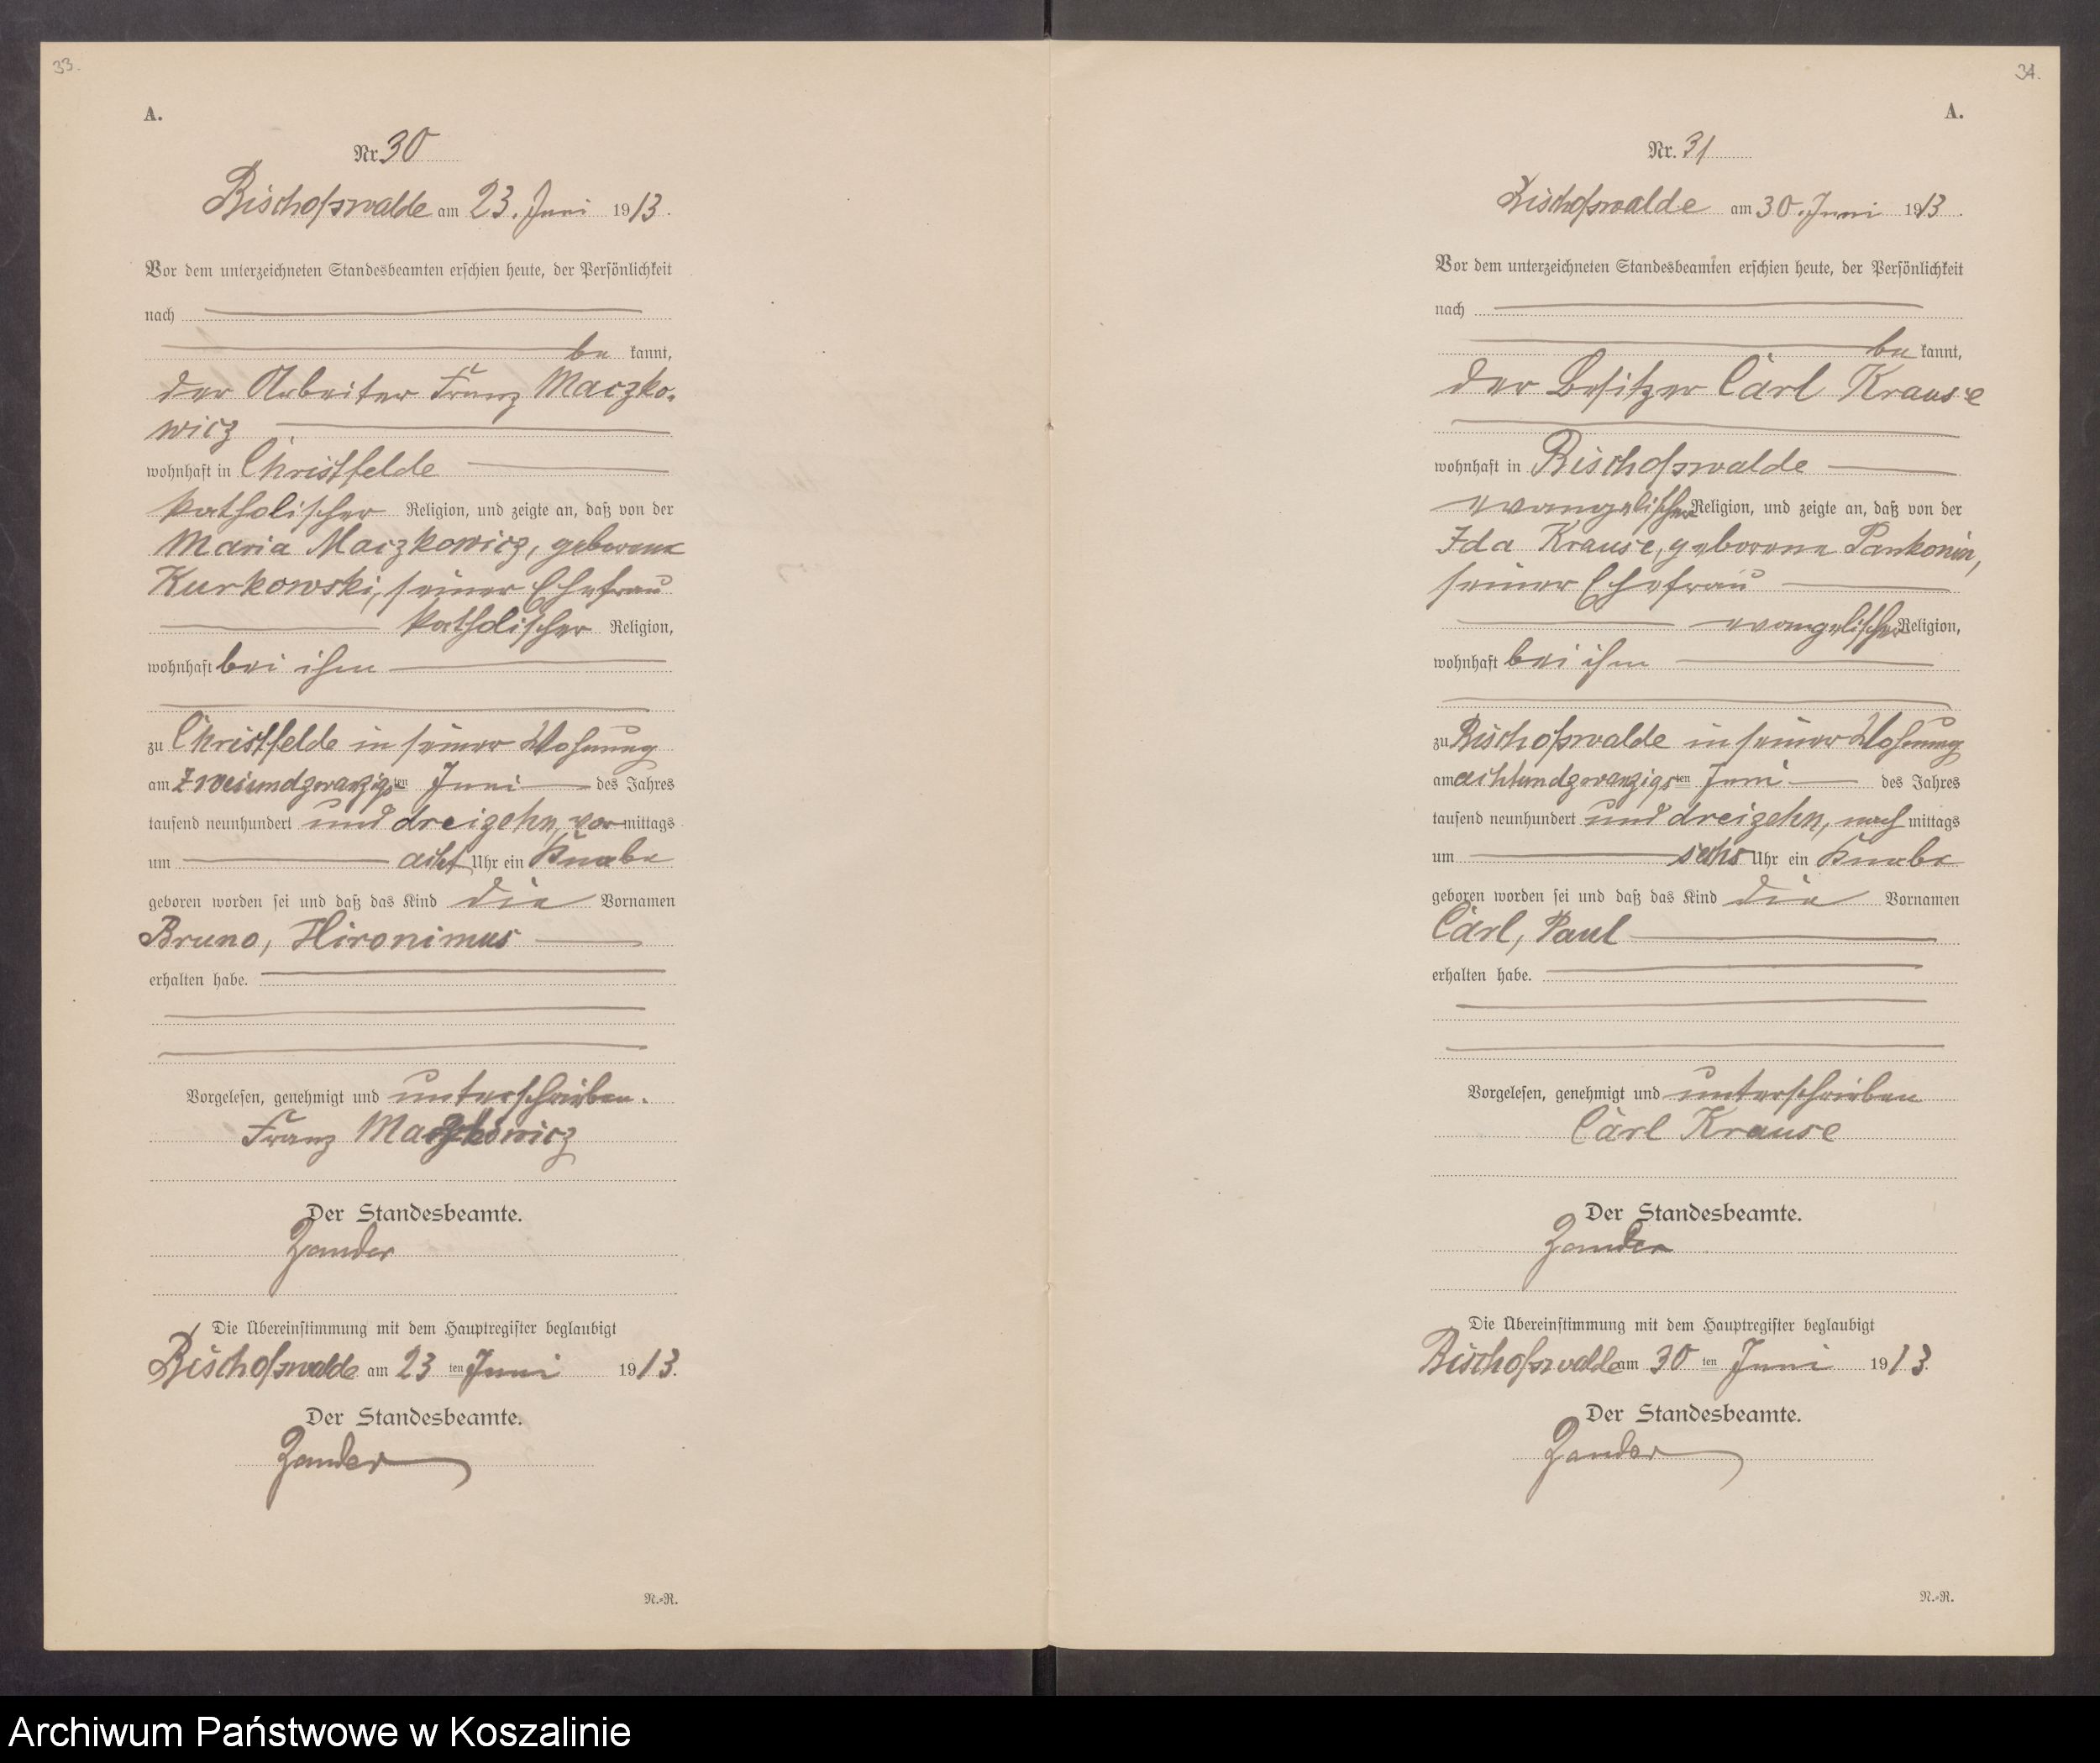 33.
A.
Nr. 30
Bischofswalde am 23. Juni 1913.
Vor dem unterzeichneten Standesbeamten erschien heute, der Persönlichkeit
nach
be kannt,
der Arbeiter Franz Maczko-
wicz
wohnhaft in Christfelde
katholischer Religion, und zeigte an, daß von der
Maria Maczkowicz, geborene
Kurkowski, seiner Ehefrau
katholischer Religion,
wohnhaft bei ihm
zu Christfelde in seiner Wohnung
am zweiundzwanzigsten Juni des Jahres
tausend neunhundert und dreizehn, vormittags
um acht Uhr ein Knabe
geboren worden sei und daß das Kind die Vornamen
Bruno, Hironimus
erhalten habe.
Vorgelesen, genehmigt und unterschrieben.
Franz Maczkowicz
Der Standesbeamte.
Zander
Die Übereinstimmung mit dem Hauptregister beglaubigt
Bischofswalde am 23 ten Juni 1913.
Der Standesbeamte.
Zander
N.-R.
34.
A.
Nr. 31
Bischofswalde am 30. Juni 1913.
Vor dem unterzeichneten Standesbeamten erschien heute, der Persönlichkeit
nach
be kannt,
der Besitzer Carl Krause
wohnhaft in Bischofswalde
evangelischer Religion, und zeigte an, daß von der
Ida Krause, geborene Pankonin,
seiner Ehefrau
evangelischer Religion,
wohnhaft bei ihm
zu Bischofswalde in seiner Wohnung
am achtundzwanzigsten Juni des Jahres
tausend neunhundert und dreizehn, nachmittags
um sechs Uhr ein Knabe
geboren worden sei und daß das Kind die Vornamen
Carl, Paul
erhalten habe.
Vorgelesen, genehmigt und unterschrieben
Carl Krause
Der Standesbeamte.
Zander
Die Übereinstimmung mit dem Hauptregister beglaubigt
Bischofswalde am 30 ten Juni 1913.
Der Standesbeamte.
Zander
N.-R.
Archiwum Państwowe w Koszalinie